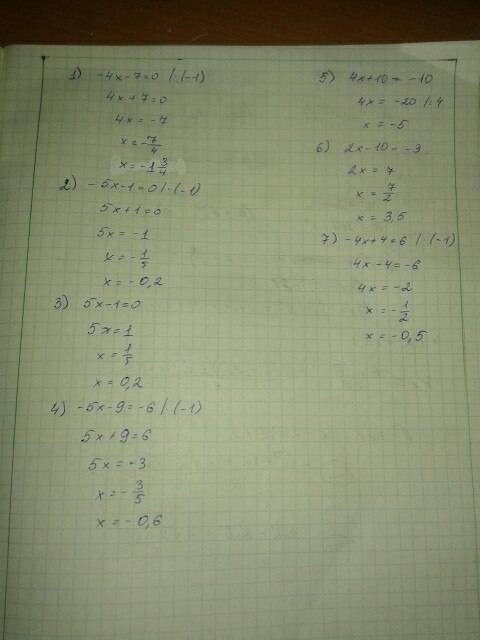 1) -4x-7=0 | ·(-1)
4x+7=0
4x = -7
x = -7/4
x = -1 3/4
2) -5x-1=0 | ·(-1)
5x+1=0
5x = -1
x = -1/5
x = -0,2
3) 5x-1=0
5x=1
x = 1/5
x = 0,2
4) -5x-9=-6 | ·(-1)
5x+9=6
5x = -3
x = -3/5
x = -0,6
5) 4x+10 = -10
4x = -20 | :4
x = -5
6) 2x-10=-3
2x = 7
x = 7/2
x = 3,5
7) -4x+4=6 | ·(-1)
4x-4=-6
4x = -2
x = -1/2
x = -0,5